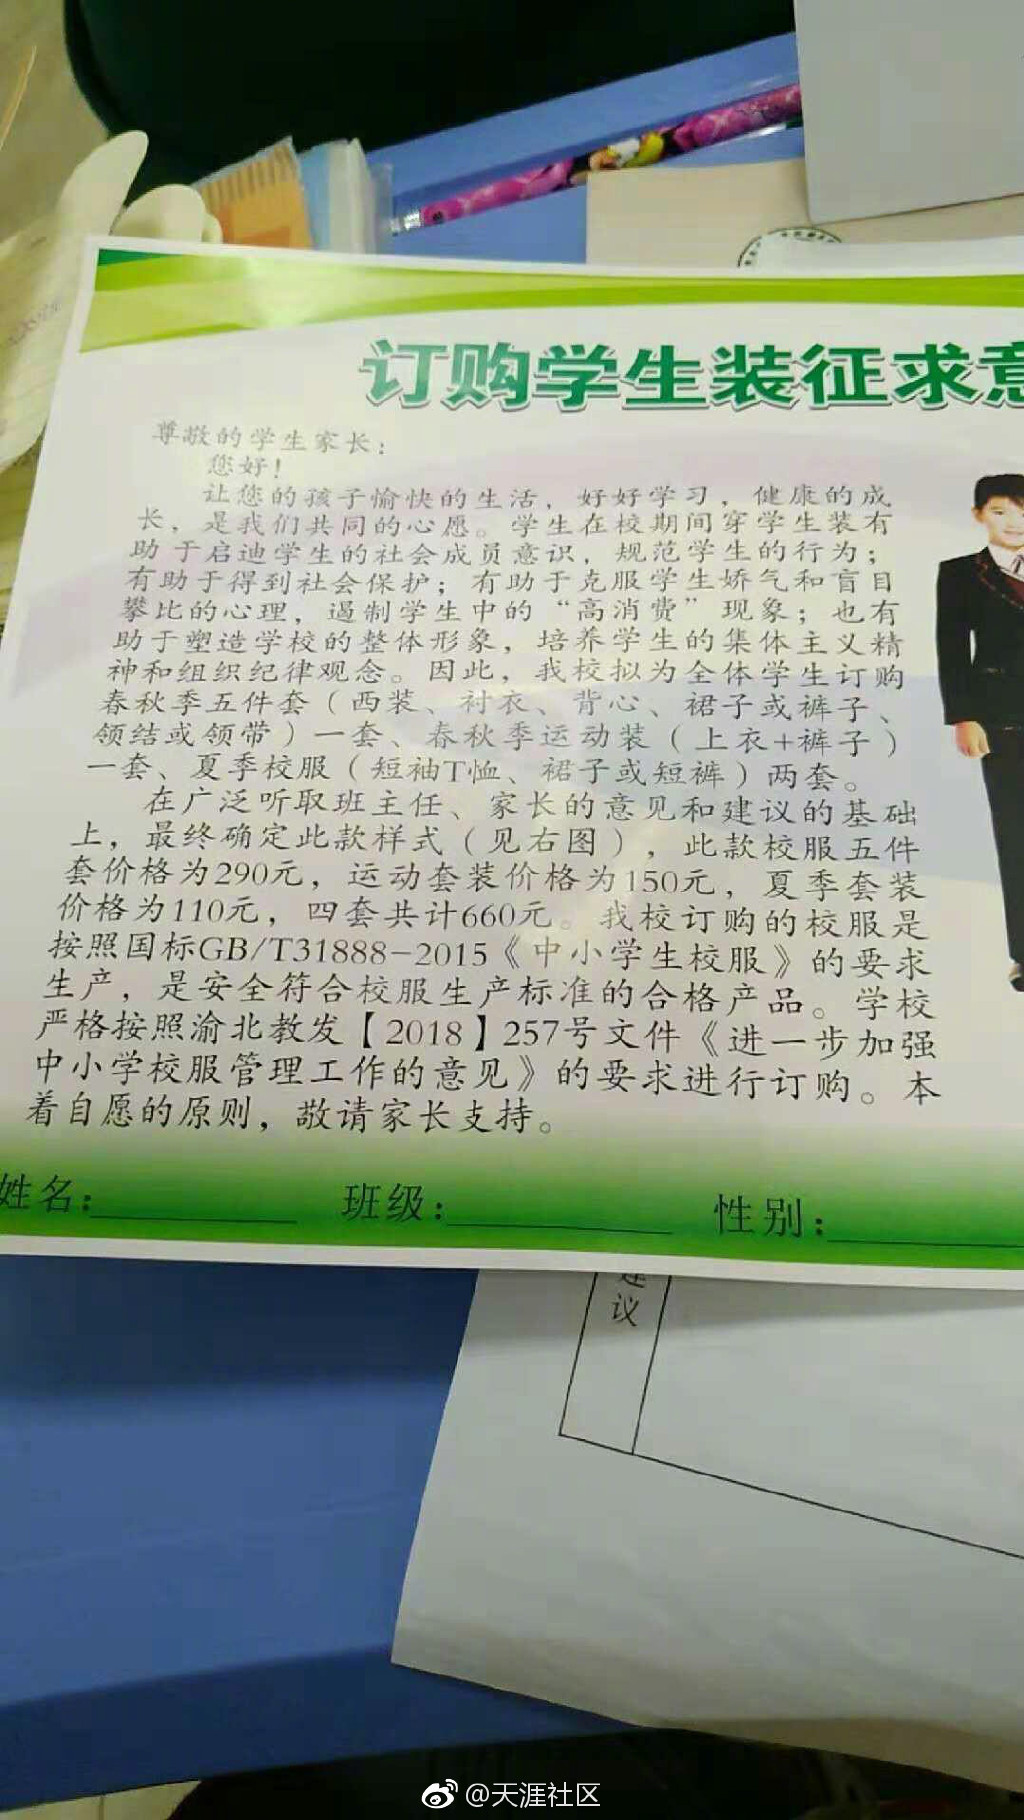 订购学生装征求意
尊敬的学生家长:
您好!
让您的孩子愉快的生活,好好学习,健康的成
长,是我们共同的心愿。学生在校期间穿学生装有
助于启迪学生的社会成员意识,规范学生的行为;
有助于得到社会保护;有助于克服学生娇气和盲目
攀比的心理,遏制学生中的“高消费”现象;也有
助于塑造学校的整体形象,培养学生的集体主义精
神和组织纪律观念。因此,我校拟为全体学生订购
春秋季五件套(西装、衬衣、背心、裙子或裤子、
领结或领带)一套、春秋季运动装(上衣+裤子)
一套、夏季校服(短袖T恤、裙子或短裤)两套。
在广泛听取班主任、家长的意见和建议的基础
上,最终确定此款样式(见右图),此款校服五件
套价格为290元,运动套装价格为150元,夏季套装
价格为110元,四套共计660元。我校订购的校服是
按照国标GB/T31888-2015《中小学生校服》的要求
生产,是安全符合校服生产标准的合格产品。学校
严格按照渝北教发【2018】257号文件《进一步加强
中小学校服管理工作的意见》的要求进行订购。本
着自愿的原则,敬请家长支持。
姓名: 班级: 性别:
建议
@天涯社区